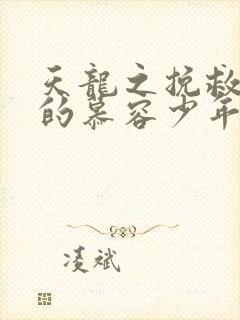 天龍之挽救
的慕容少年
凌斌